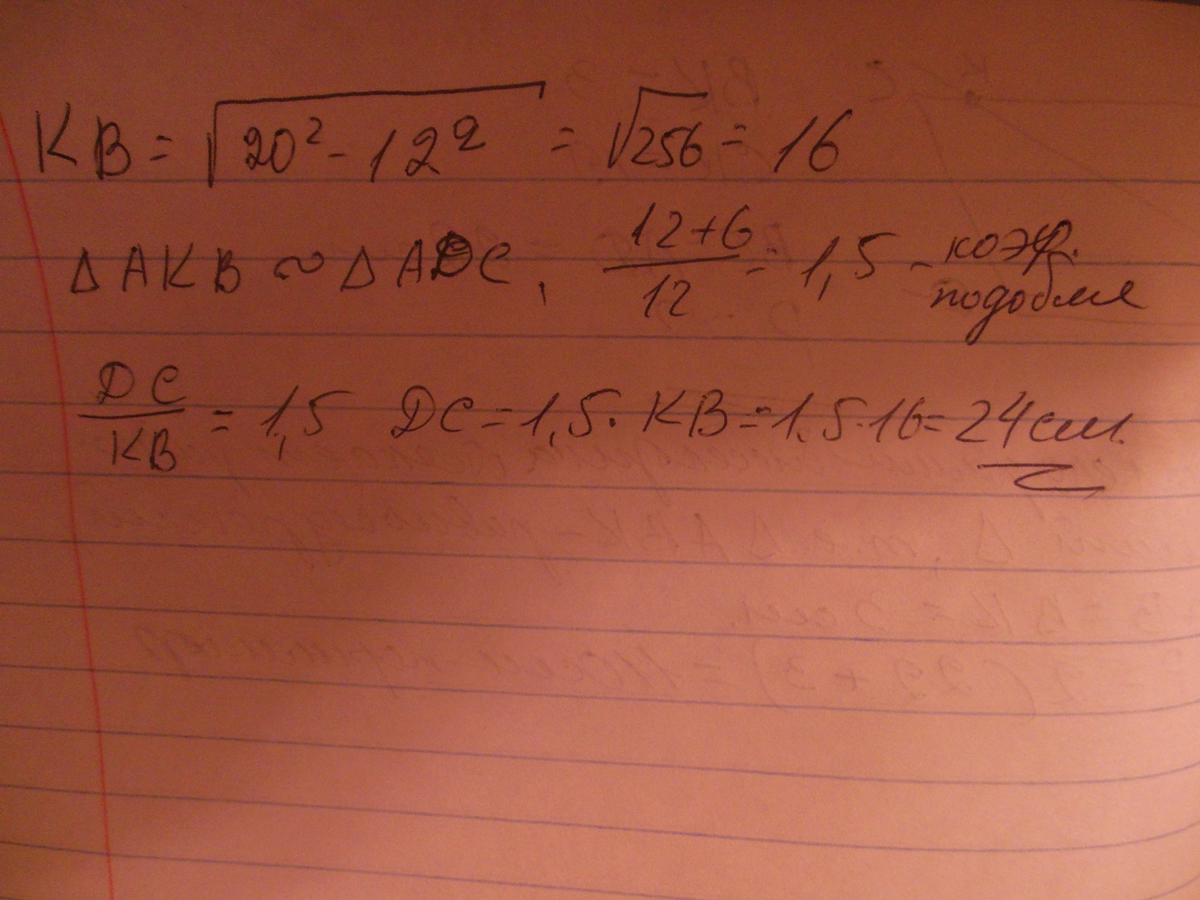 KB = √20² - 12² = √256 = 16
Δ AKB ∾ Δ ADC, 12+6/12 = 1,5 - коэф. подобия
DC/KB = 1,5 DC = 1,5 · KB = 1,5 · 16 = 24 см.